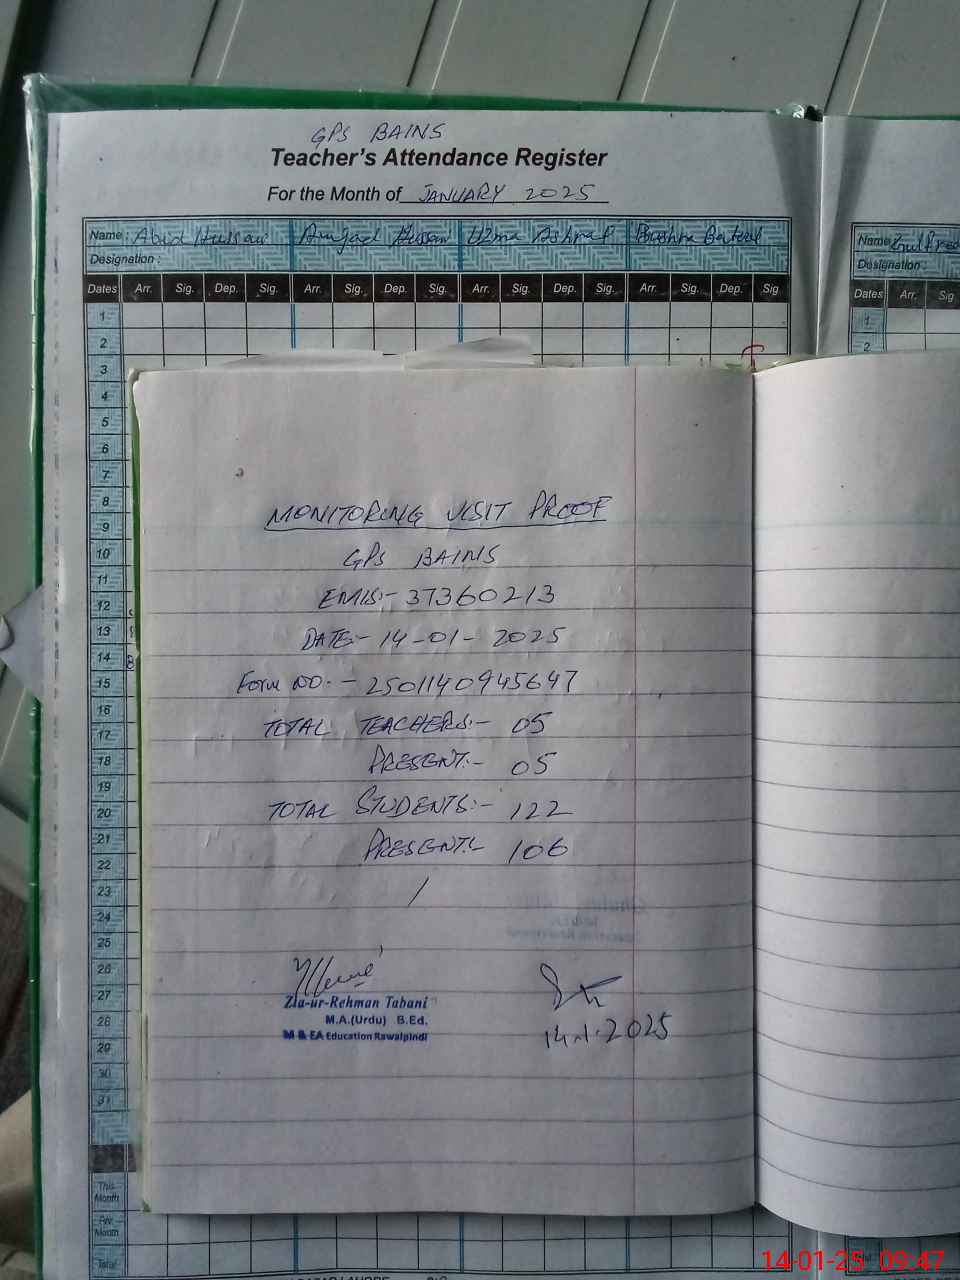 GPS BAINS
Teacher's Attendance Register
For the Month of JANUARY 2025
Name: Abid Hussain Amjad Hussain Uzma Ashraf Bushra Batool
Designation:
Dates Arr. Sig. Dep. Sig. Arr. Sig. Dep. Sig. Arr. Sig. Dep. Sig. Arr. Sig. Dep. Sig
Name
Designation:
Dates Arr. Sig
1
2
3
4
5
6
7
8
9
10
11
12
13
14
15
16
17
18
19
20
21
22
23
24
25
26
27
28
29
30
31
This Month
Total
1
2
MONITORING VISIT PROOF
GPS BAINS
EMIS:- 37360213
DATE:- 14-01-2025
Form NO:- 2501140945647
TOTAL TEACHERS:- 05
PRESENT:- 05
TOTAL STUDENTS:- 122
PRESENT:- 106
Zia-ur-Rehman Tabani
M.A.(Urdu) B.Ed.
M & EA Education Rawalpindi
14.1.2025
14-01-25 09:47